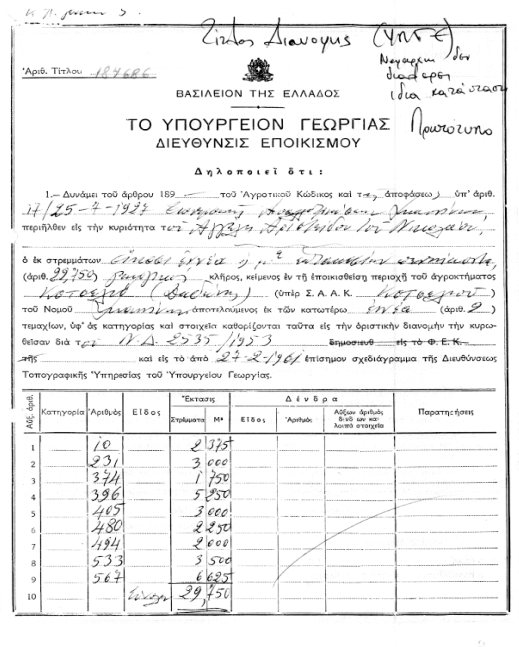 Τίτλος Διανομής (ΥΠΓΕ)
Αριθ. Τίτλου 187686
δεν
διαφέρει
ίδια κατάσταση
Πρωτότυπο
ΒΑΣΙΛΕΙΟΝ ΤΗΣ ΕΛΛΑΔΟΣ
ΤΟ ΥΠΟΥΡΓΕΙΟΝ ΓΕΩΡΓΙΑΣ
ΔΙΕΥΘΥΝΣΙΣ ΕΠΟΙΚΙΣΜΟΥ
Δηλοποιεῖ ὅτι:
1.— Δυνάμει τοῦ ἄρθρου 189 τοῦ Ἀγροτικοῦ Κώδικος καὶ τῆς ἀποφάσεως ὑπ' ἀριθ.
17/25-7-1927
περιῆλθεν εἰς τὴν κυριότητα τοῦ Νικολάου
ὁ ἐκ στρεμμάτων εἴκοσι ἐννέα
(ἀριθ. 29,750) κλῆρος, κείμενος ἐν τῇ ἐποικισθείσῃ περιοχῇ τοῦ ἀγροκτήματος
(ὑπὲρ Σ.Α.Α.Κ.
τοῦ Νομοῦ ἀποτελούμενος ἐκ τῶν κατωτέρω ἐννέα (ἀριθ. 9)
τεμαχίων, ὑφ' ἃς κατηγορίας καὶ στοιχεῖα καθορίζονται ταῦτα εἰς τὴν ὁριστικὴν διανομὴν τὴν κυρω-
θεῖσαν διὰ τοῦ Ν.Δ. 2535/1953 δημοσιευθ εἰς τὸ Φ.Ε.Κ.
τῆς καὶ εἰς τὸ ἀπὸ 27-2-1961 ἐπίσημον σχεδιάγραμμα τῆς Διευθύνσεως
Τοπογραφικῆς Ὑπηρεσίας τοῦ Ὑπουργείου Γεωργίας.
Αὔξ. ἀριθ. Κατηγορία Ἀριθμὸς Εἶδος Ἔκτασις Δένδρα Παρατηρήσεις
Στρέμματα Μ² Εἶδος Ἀριθμὸς Αὔξων ἀριθμὸς
δένδρων καὶ
λοιπὰ στοιχεῖα
1 10 2 375
2 231 3 000
3 374 1 750
4 396 5 250
5 405 3 000
6 480 2 250
7 494 2 000
8 533 3 500
9 567 6 625
10 Σύνολον 29,750